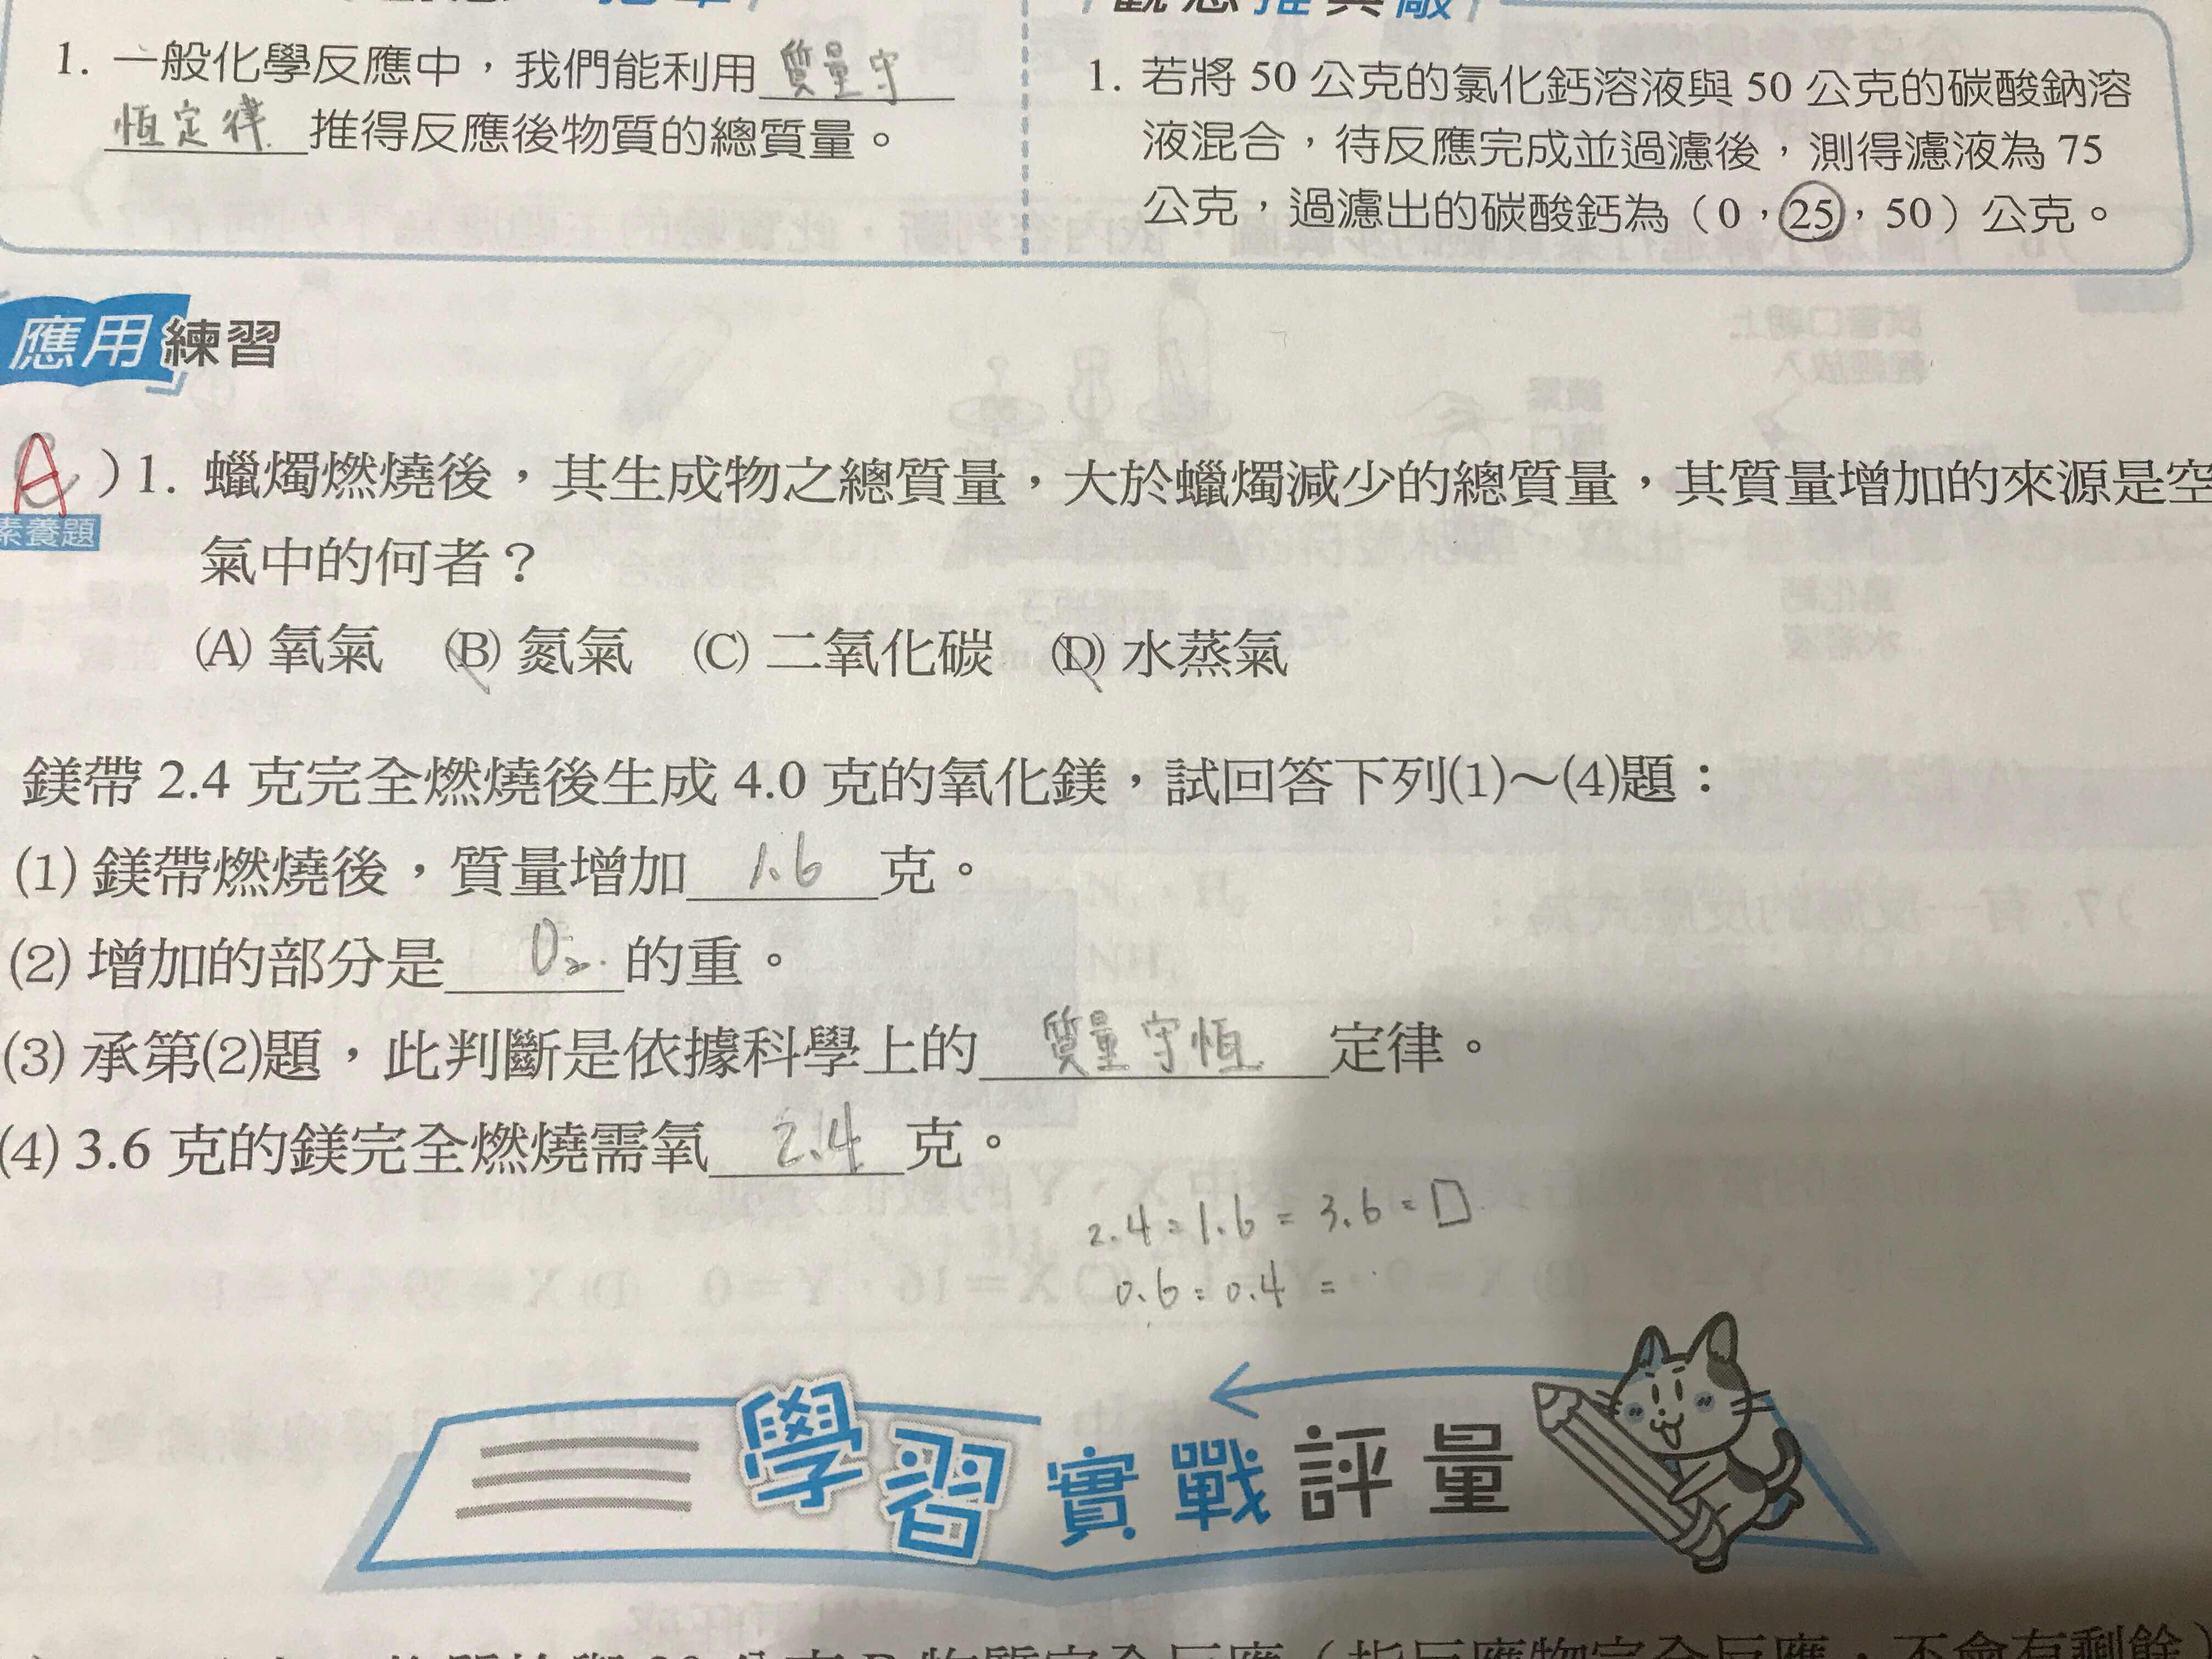 1. 一般化學反應中，我們能利用質量守
恆定律推得反應後物質的總質量。
1. 若將 50 公克的氯化鈣溶液與 50 公克的碳酸鈉溶
液混合，待反應完成並過濾後，測得濾液為 75
公克，過濾出的碳酸鈣為（0，25，50）公克。
應用練習
A ）1. 蠟燭燃燒後，其生成物之總質量，大於蠟燭減少的總質量，其質量增加的來源是空
素養題
氣中的何者？
(A) 氧氣 (B) 氮氣 (C) 二氧化碳 (D) 水蒸氣
鎂帶 2.4 克完全燃燒後生成 4.0 克的氧化鎂，試回答下列(1)～(4)題：
(1) 鎂帶燃燒後，質量增加 1.6 克。
(2) 增加的部分是 O₂ 的重。
(3) 承第(2)題，此判斷是依據科學上的 質量守恆 定律。
(4) 3.6 克的鎂完全燃燒需氧 2.4 克。
2.4 = 1.6 = 3.6 = □
0.6 : 0.4 =
學習實戰評量